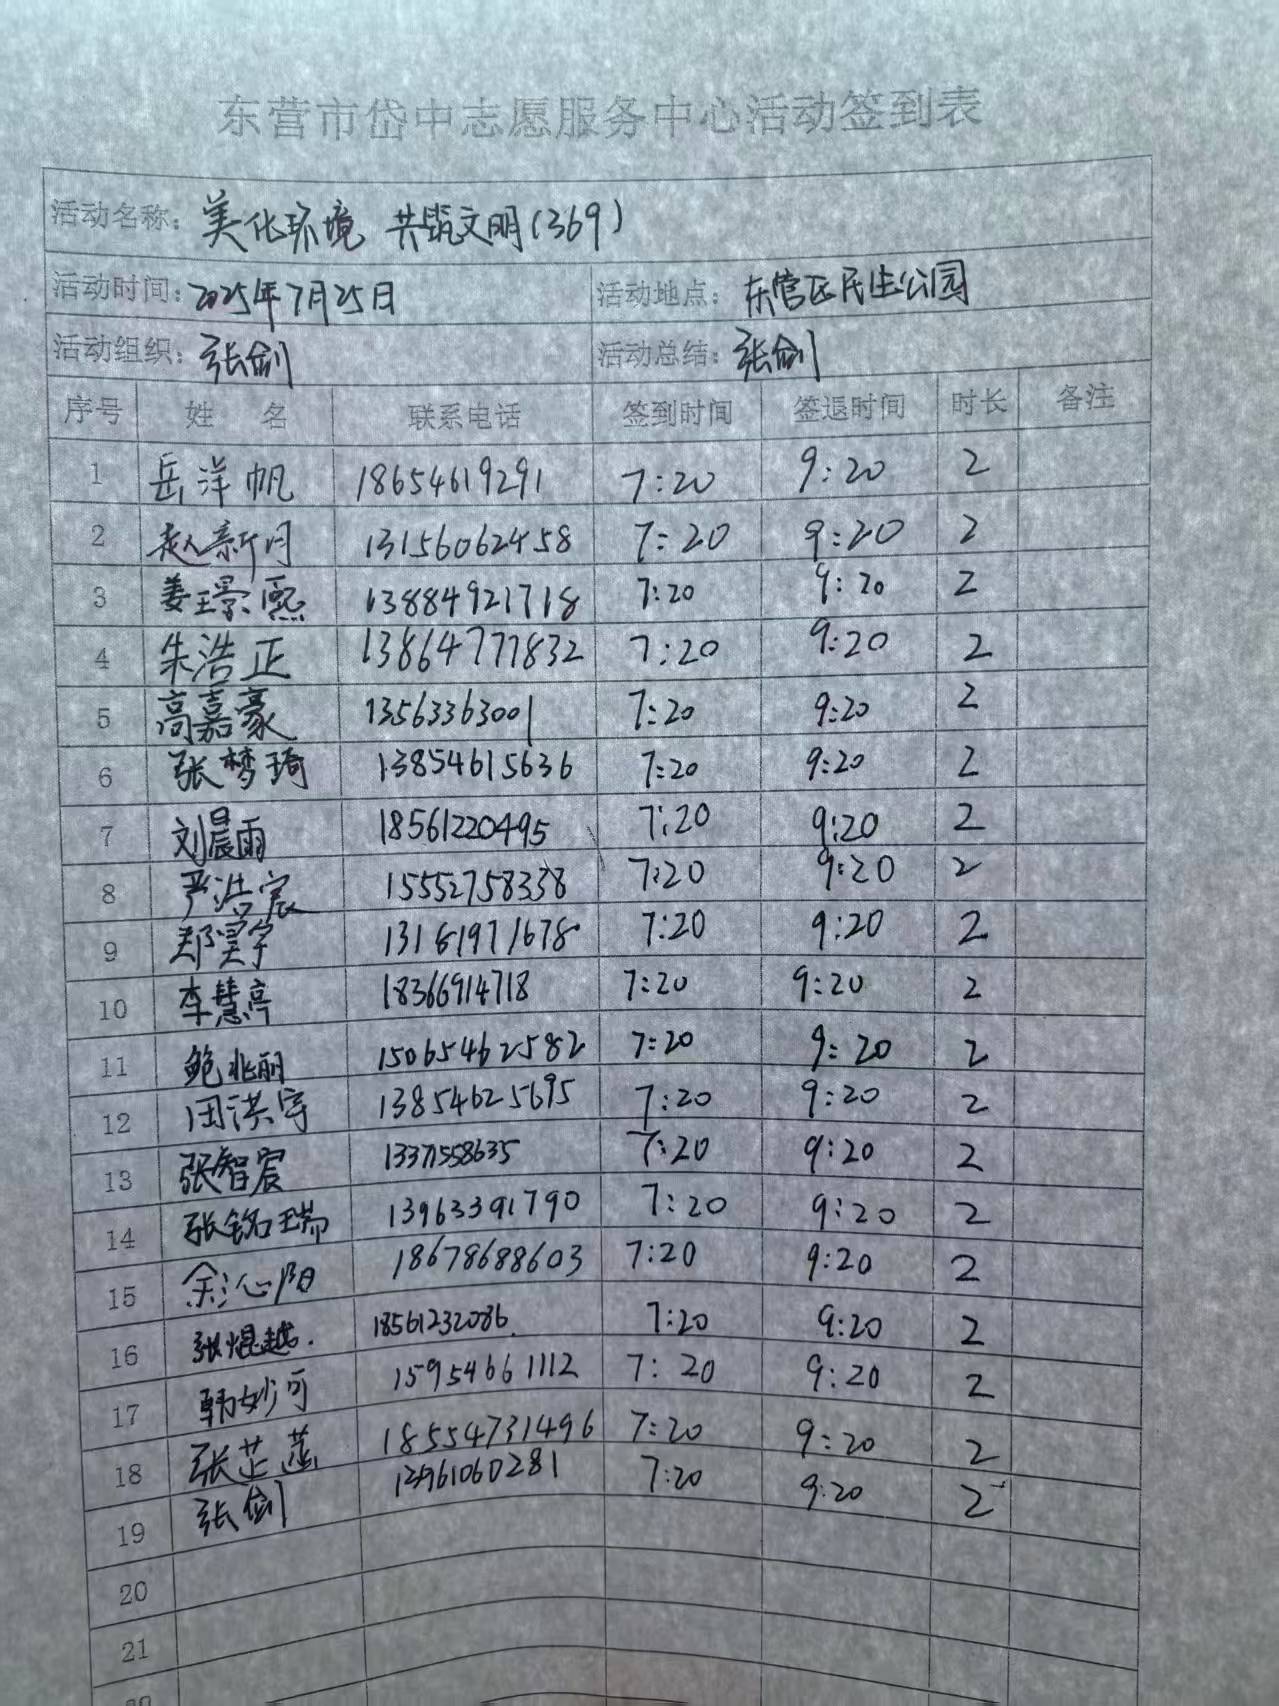 东营市岱中志愿服务中心活动签到表
活动名称：美化环境 共筑文明(369)
活动时间：2025年7月25日 活动地点：东营区民生公园
活动组织：张剑 活动总结：张剑
序号 姓 名 联系电话 签到时间 签退时间 时长 备注
1 岳洋帆 18654619291 7:20 9:20 2
2 赵新月 13156062458 7:20 9:20 2
3 姜璟熙 13884921718 7:20 9:20 2
4 朱浩正 13864777832 7:20 9:20 2
5 高嘉豪 13563363001 7:20 9:20 2
6 张梦琦 13854615636 7:20 9:20 2
7 刘晨雨 18561220495 7:20 9:20 2
8 严浩宸 15552758338 7:20 9:20 2
9 郑昊宇 13181971678 7:20 9:20 2
10 李慧亭 18366914718 7:20 9:20 2
11 鲍兆丽 15065462582 7:20 9:20 2
12 田洪宇 13854625695 7:20 9:20 2
13 张智宸 13371558635 7:20 9:20 2
14 张铭瑞 13963391790 7:20 9:20 2
15 余沁阳 18678688603 7:20 9:20 2
16 张焜越. 18561232086. 7:20 9:20 2
17 韩妙可 15954661112 7:20 9:20 2
18 张芷菡 18554731496 7:20 9:20 2
19 张剑 7:20 9:20 2
20
21